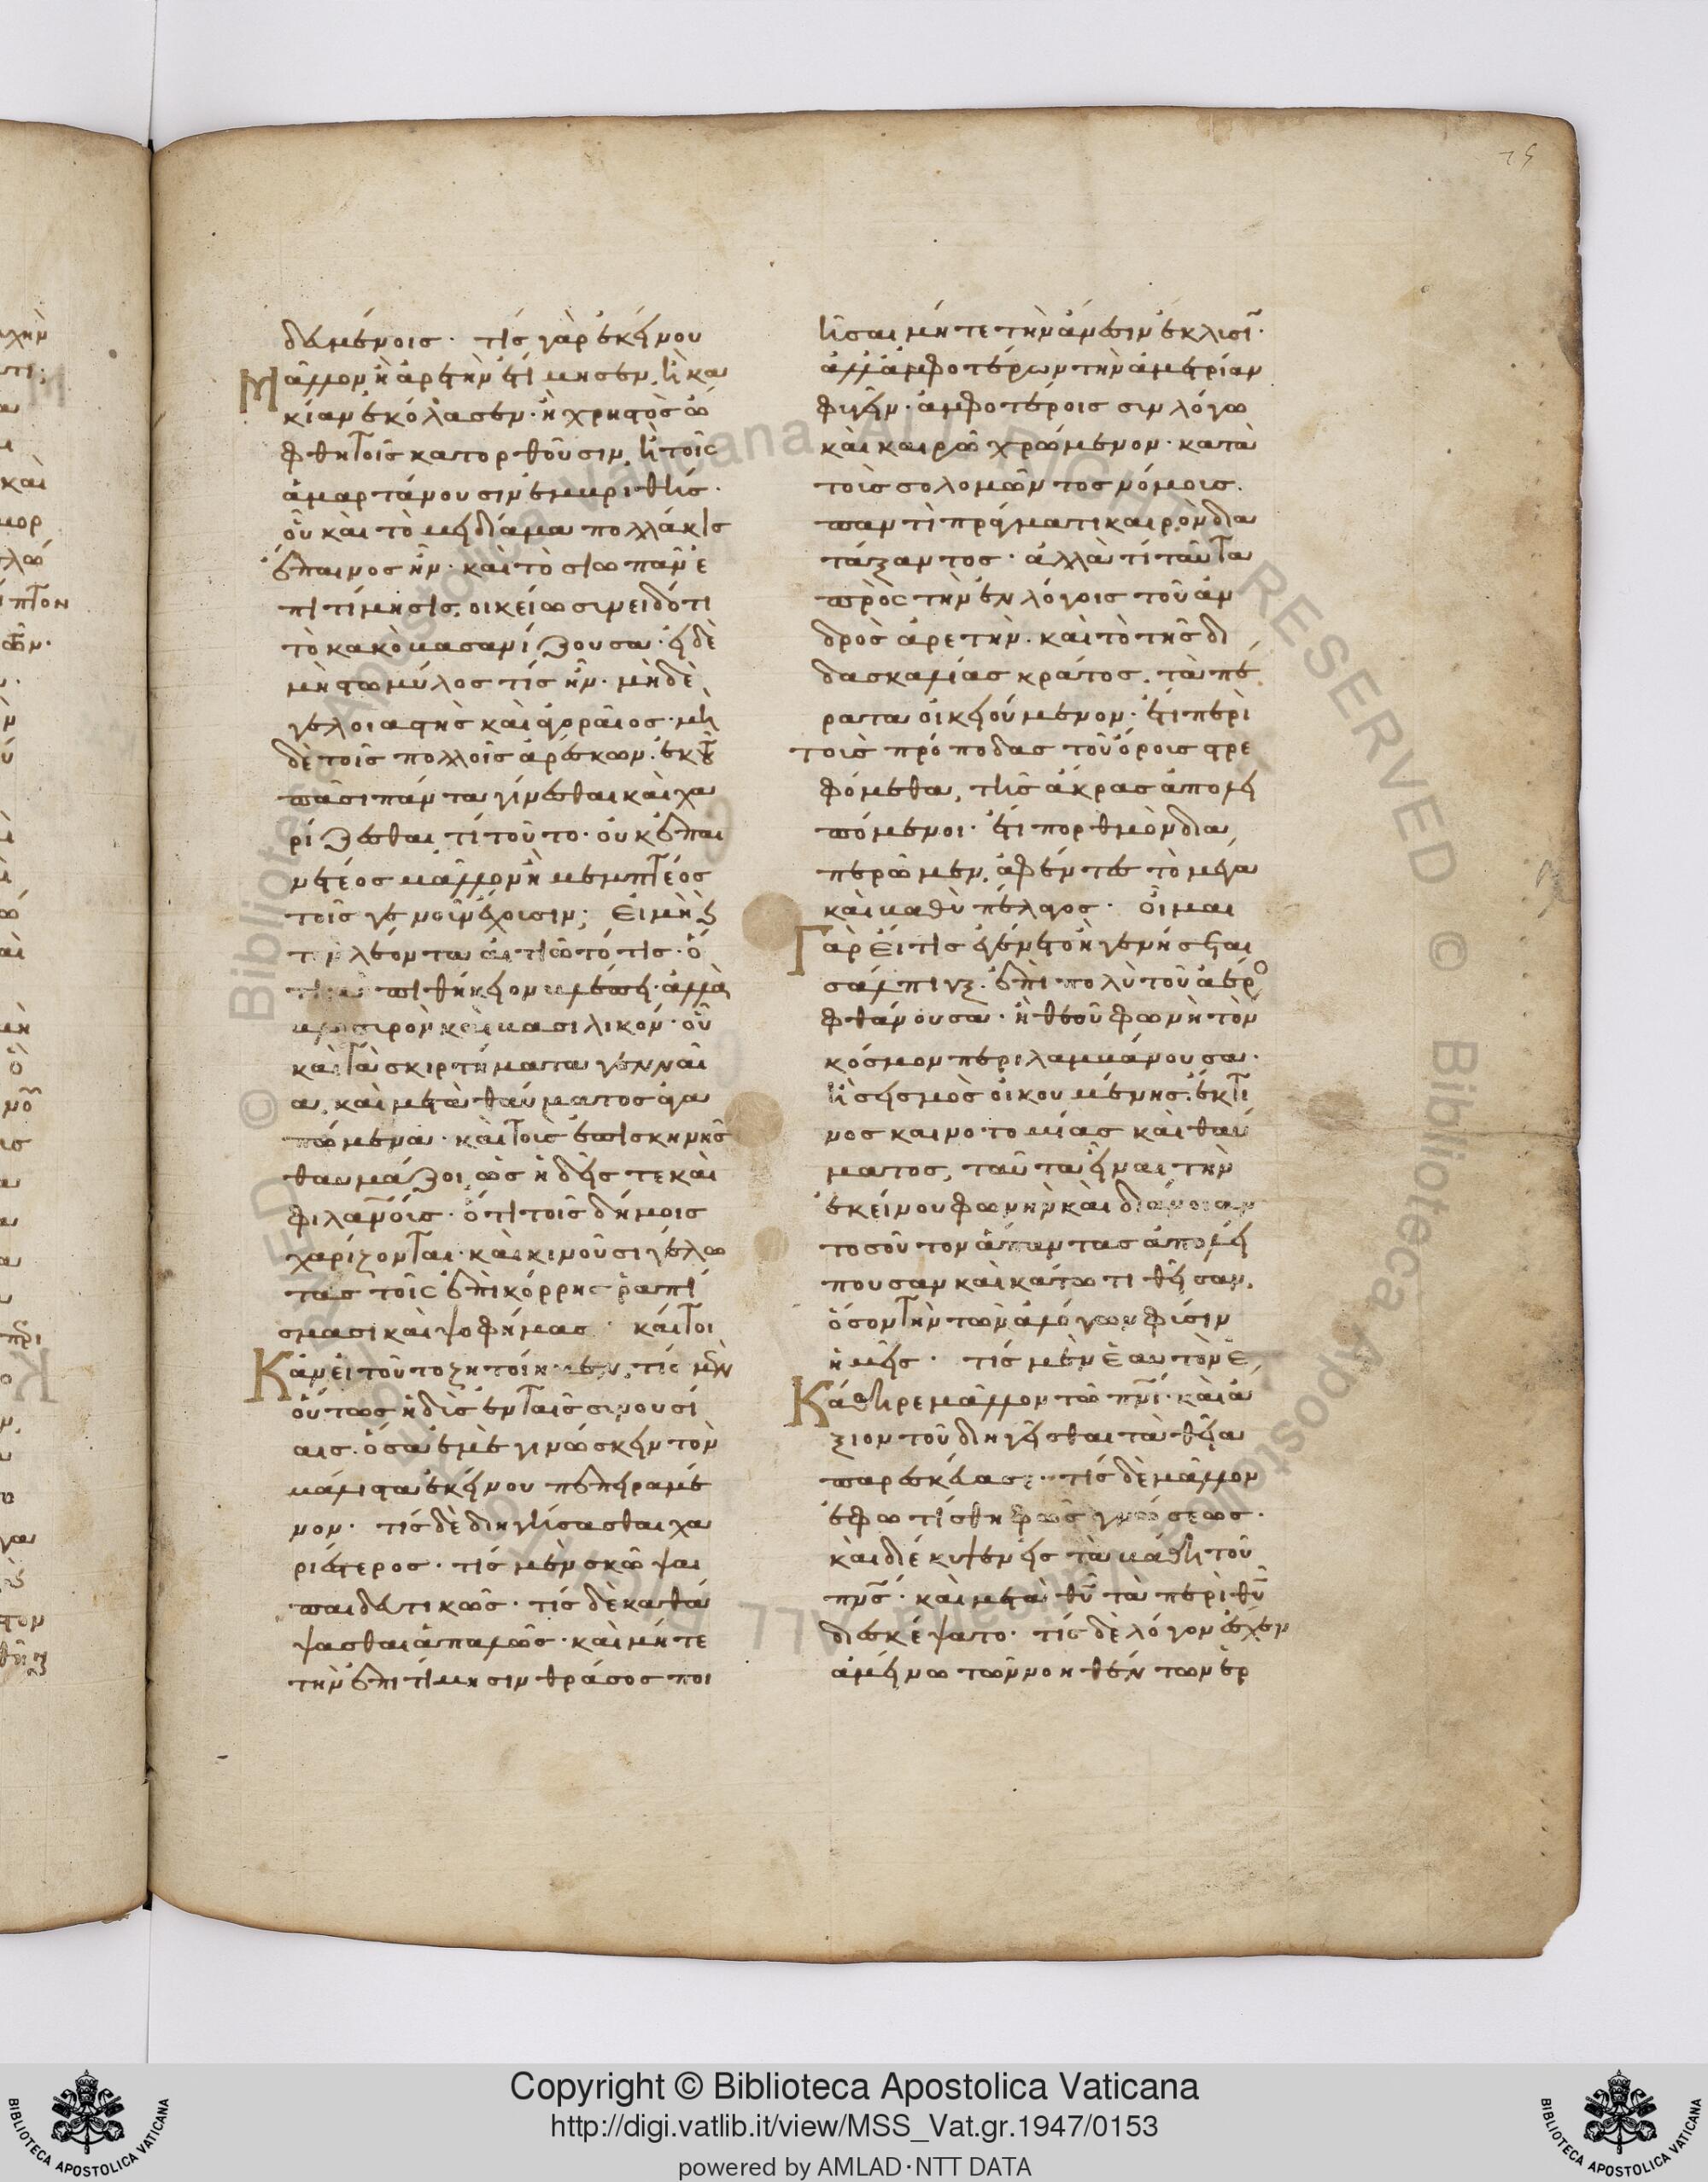 δευμένοις· τίς γὰρ ἐκείνου
Μᾶλλον ἢ ἀρετὴν ἐτίμησεν, ἢ κα
κίαν ἐκόλασεν· ἢ χρηστὸς ὤ
φθη τοῖς κατορθοῦσιν, ἢ τοῖς
ἁμαρτάνουσιν ἐμβριθὴς·
οὗ καὶ τὸ μειδίαμα πολλάκις
ἔπαινος ἦν· καὶ τὸ σιωπᾶν ἐ
πιτίμησις, οἰκείω συνειδότι
τὸ κακὸν βασανίζουσα· εἰ δὲ
μὴ στωμύλος τίς ἦν· μὴ δὲ
γελοιαστὴς καὶ ἀγοραῖος· μη
δὲ τοῖς πολλοῖς ἀρέσκων· ἐκ τοῦ
πᾶσι πάντα γίνεσθαι καὶ χα
ρίζεσθαι, τί τοῦτο· οὐκ ἐπαι
νετέος μᾶλλον ἢ μεμπτέος
τοῖς γε νοῦν ἔχουσιν; Εἰ μὴ καὶ
τὸν λέοντα αἰτιῶτό τις· ὅ
τι μὴ πιθήκειον βλέπει· ἀλλὰ
βλοσυρὸν καὶ βασιλικόν· οὗ
καὶ τὰ σκιρτήματα γενναῖ
α, καὶ μετὰ θαύματος ἀγα
πώμενα· καὶ τοὺς ἐπισκηνῆς
θαυμάζοι, ὡς ἡδεῖς τε καὶ
φιλανους· ὅτι τοῖς δήμοις
χαρίζονται· καὶ κινοῦσι γέλω
τας τοῖς ἐπὶ κόρρης ῥαπί
σμασι καὶ ψοφήμασι· καίτοι
Κἂν εἰ τοῦτο ζητοίημεν, τίς μὲν
οὕτως ἡδὺς ἐν ταῖς συνουσί
αις· ὅσα ἐμὲ γινώσκειν τὸν
μάλιστα ἐκείνου πεπειραμέ
νον· τίς δὲ διηγήσασθαι χα
ριέστερος· τίς μὲν σκῶψαι
παιδευτικῶς· τίς δὲ καθά
ψασθαι ἁπαλῶς· καὶ μήτε
τὴν ἐπιτίμησιν θράσος ποι
ῆσαι μήτε τὴν ἄνεσιν ἔκλυσιν·
ἀλλ' ἀμφοτέρων τὴν ἀμετρίαν
φυγεῖν· ἀμφοτέροις σὺν λόγω
καὶ καιρῶ χρώμενον· κατὰ
τοὺς σολομῶντος νόμους·
παντὶ πράγματι καιρὸν δια
τάξαντος· ἀλλὰ τί ταῦτα
πρὸς τὴν ἐν λόγοις τοῦ ἀν
δρὸς ἀρετὴν· καὶ τὸ τῆς δι
δασκαλίας κράτος, τὰ πέ
ρατα οἰκειούμενον· ἔτι περὶ
τοὺς πρόποδας τοῦ ὄρους στρε
φόμεθα, τῆς ἄκρας ἀπολει
πόμενοι· ἔτι πορθμὸν δια
περῶμεν, ἀφέντες τὸ μέγα
καὶ βαθὺ πέλαγος· οἶμαι
Γὰρ εἴ τις ἐγένετο ἢ γενήσεται
σάλπιγξ· ἐπὶ πολὺ τοῦ ἀέρο
φθάνουσα· ἢ θεοῦ φωνὴ τὸν
κόσμον περιλαμβάνουσα·
ἢ σεισμὸς οἰκουμένης· ἔκ τι
νος καινοτομίας καὶ θαύ
ματος, ταῦτα εἶναι τὴν
ἐκείνου φωνὴν καὶ διάνοιαν
τοσοῦτον ἅπαντας ἀπολεί
πουσαν καὶ κάτω τιθεῖσαν,
ὅσον τὴν τῶν ἀλόγων φύσιν
ἡμεῖς· τίς μὲν ἑαυτὸν ἐ
Κάθηρε μᾶλλον τῶ πνι· καὶ ἄ
ξιον τοῦ διηγεῖσθαι τὰ θεῖα
παρεσκέυασε· τίς δὲ μᾶλλον
ἐφωτίσθη φῶς γνώσεως·
καὶ διέκυψεν εἰς τὰ βάθη τοῦ
πνς· καὶ μετὰ θυ τὰ περὶ θυ
διεσκέψατο· τίς δὲ λόγον ἔσχεν
ἀμείνω τῶν νοηθέντων ἑρ
Copyright © Biblioteca Apostolica Vaticana
http://digi.vatlib.it/view/MSS_Vat.gr.1947/0153
powered by AMLAD·NTT DATA